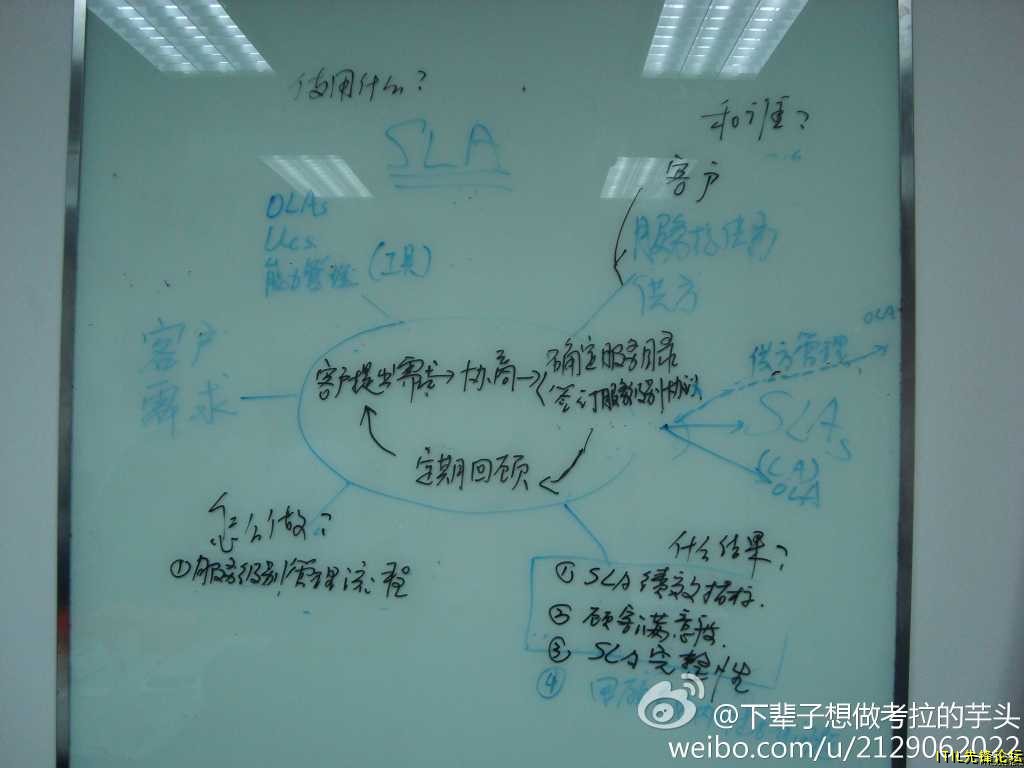 使用什么?
和谁?
SLA
客户
OLAs
UCs
能力管理 (工具)
供方
客户
需求
OLA
供方管理
客户提出需求→协商→
确定服务目录
签订服务级别协议
SLAs
(LA)
OLA
定期回顾
怎么做?
①服务级别管理流程
什么结果?
① SLA绩效指标.
② 顾客满意度.
③ SLA完整性
④
@下辈子想做考拉的芋头
weibo.com/u/2129062022
ITIL先锋论坛